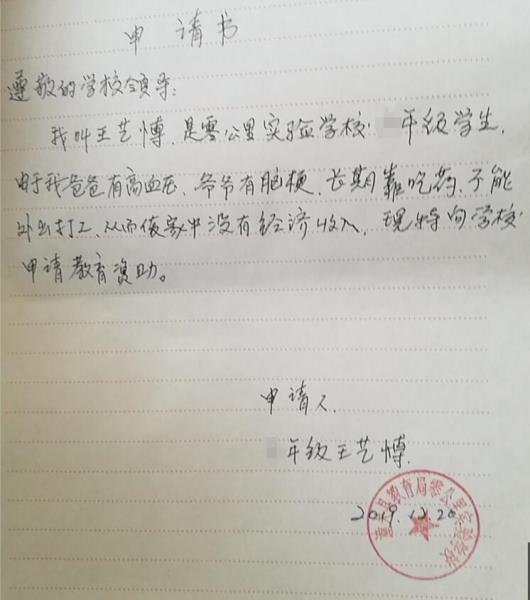 申请书
尊敬的学校领导:
我叫王艺博,是零公里实验学校 年级学生,
由于我爸爸有高血压、爷爷有脑梗、长期靠吃药、不能
外出打工、从而使家中没有经济收入,现特向学校
申请教育资助。
申请人,
年级王艺博.
2019.12.20
教育局零公里实验学校